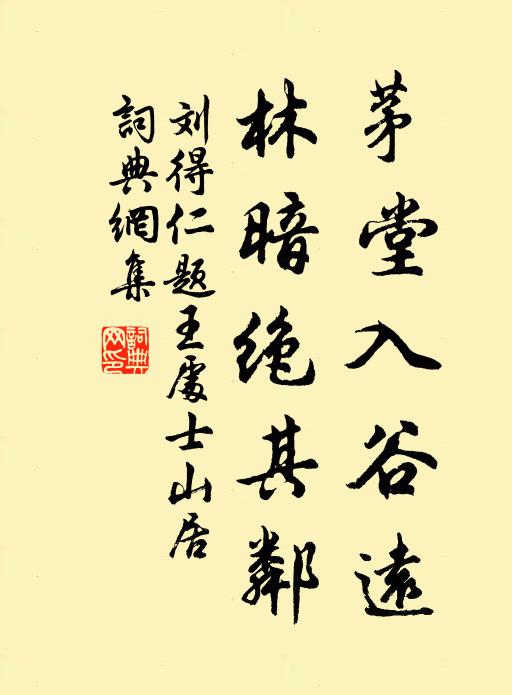 茅堂入谷遠
林暗絶其鄰
刘得仁题王處士山居
詞典網集
詞典網印